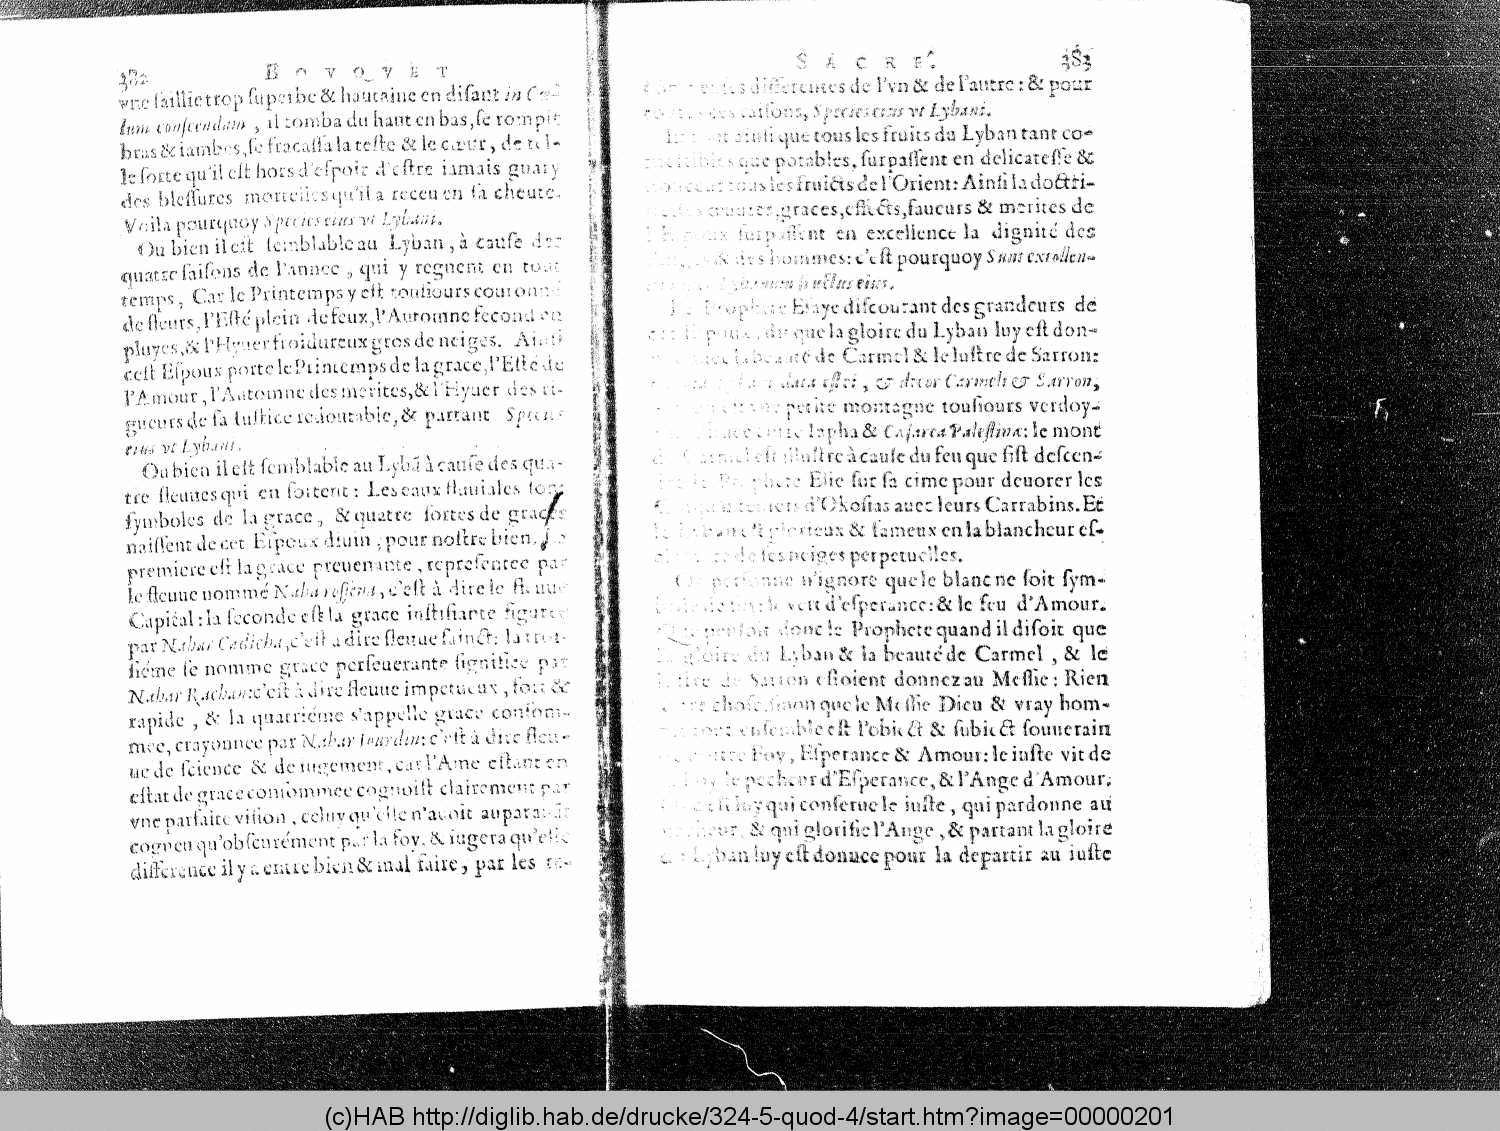 382 BOVQVET
vne saillie trop superbe & hautaine en disant in Cœ-
lum conscendam, il tomba du haut en bas, se rompit
bras & iambes, se fracassa la teste & le cœur, de tel-
le sorte qu'il est hors d'espoir d'estre iamais guary
des blessures mortelles qu'il a receu en sa cheute.
Voila pourquoy Species eius vt Lybani.
Ou bien il est semblable au Lyban, à cause des
quatre saisons de l'annee, qui y regnent en tout
temps, Car le Printemps y est tousiours couronné
de fleurs, l'Esté plein de feux, l'Automne fecond en
pluyes, & l'Hyuer froidureux gros de neiges. Ainsi
cest Espoux porte le Printemps de la grace, l'Esté de
l'Amour, l'Automne des merites, & l'Hyuer des ri-
gueurs de sa Iustice redoutable, & partant Species
eius vt Lybani.
Ou bien il est semblable au Lybã à cause des qua-
tre fleuues qui en sortent: Les eaux fluuiales sont
symboles de la grace, & quatre sortes de graces
naissent de cet Espoux diuin, pour nostre bien. La
premiere est la grace preuenante, representee par
le fleuue nommé Naharessena, c'est à dire le fleuue
Capital: la seconde est la grace iustifiante figuree
par Nahar Cadicha, c'est a dire fleuue sainct: la troi-
siéme se nomme grace perseuerante signifiee par
Nahar Rachan: c'est à dire fleuue impetueux, fort &
rapide, & la quatriéme s'appelle grace consom-
mee, crayonnee par Nahar Iourdin: c'est à dire fleu-
ue de science & de iugement, car l'Ame estant en
estat de grace consommee cognoist clairement par
vne parfaite vision, celuy qu'elle n'auoit auparauãt
cogneu qu'obscurément par la foy, & iugera qu'elle
difference il y a entre bien & mal faire, par les re-
SACRE. 383
differentes de l'vn & de l'autre: & pour
raisons, Species eius vt Lybani.
ainsi que tous les fruits du Lyban tant co-
mestibles que potables, surpassent en delicatesse &
tous les fruicts de l'Orient: Ainsi la doctri-
graces, effects, faueurs & merites de
l'Espoux surpassent en excellence la dignité des
& des hommes: c'est pourquoy Sunt extollen-
Lybanum fructus eius.
Le Prophete Esaye discourant des grandeurs de
Espoux, dit que la gloire du Lyban luy est don-
la beauté de Carmel & le lustre de Sarron:
data est ei, & decor Carmeli & Sarron,
petite montagne tousiours verdoy-
entre Iapha & Cæsarea Palestina: le mont
Carmel est illustre à cause du feu que fist descen-
le Prophete Elie sur sa cime pour deuorer les
d'Okosias auec leurs Carrabins. Et
le Lyban est glorieux & fameux en la blancheur es-
de ses neiges perpetuelles.
Or personne n'ignore que le blanc ne soit sym-
bole de foy: le vert d'esperance: & le feu d'Amour.
Que pensoit donc le Prophete quand il disoit que
la gloire du Lyban & la beauté de Carmel, & le
de Sarron estoient donnez au Messie: Rien
chose, sinon que le Messie Dieu & vray hom-
ensemble est l'obiect & subiect souuerain
Foy, Esperance & Amour: le iuste vit de
Foy le pecheur d'Esperance, & l'Ange d'Amour.
est luy qui conserue le iuste, qui pardonne au
pecheur, & qui glorifie l'Ange, & partant la gloire
du Lyban luy est donnee pour la departir au iuste
(c)HAB http://diglib.hab.de/drucke/324-5-quod-4/start.htm?image=00000201